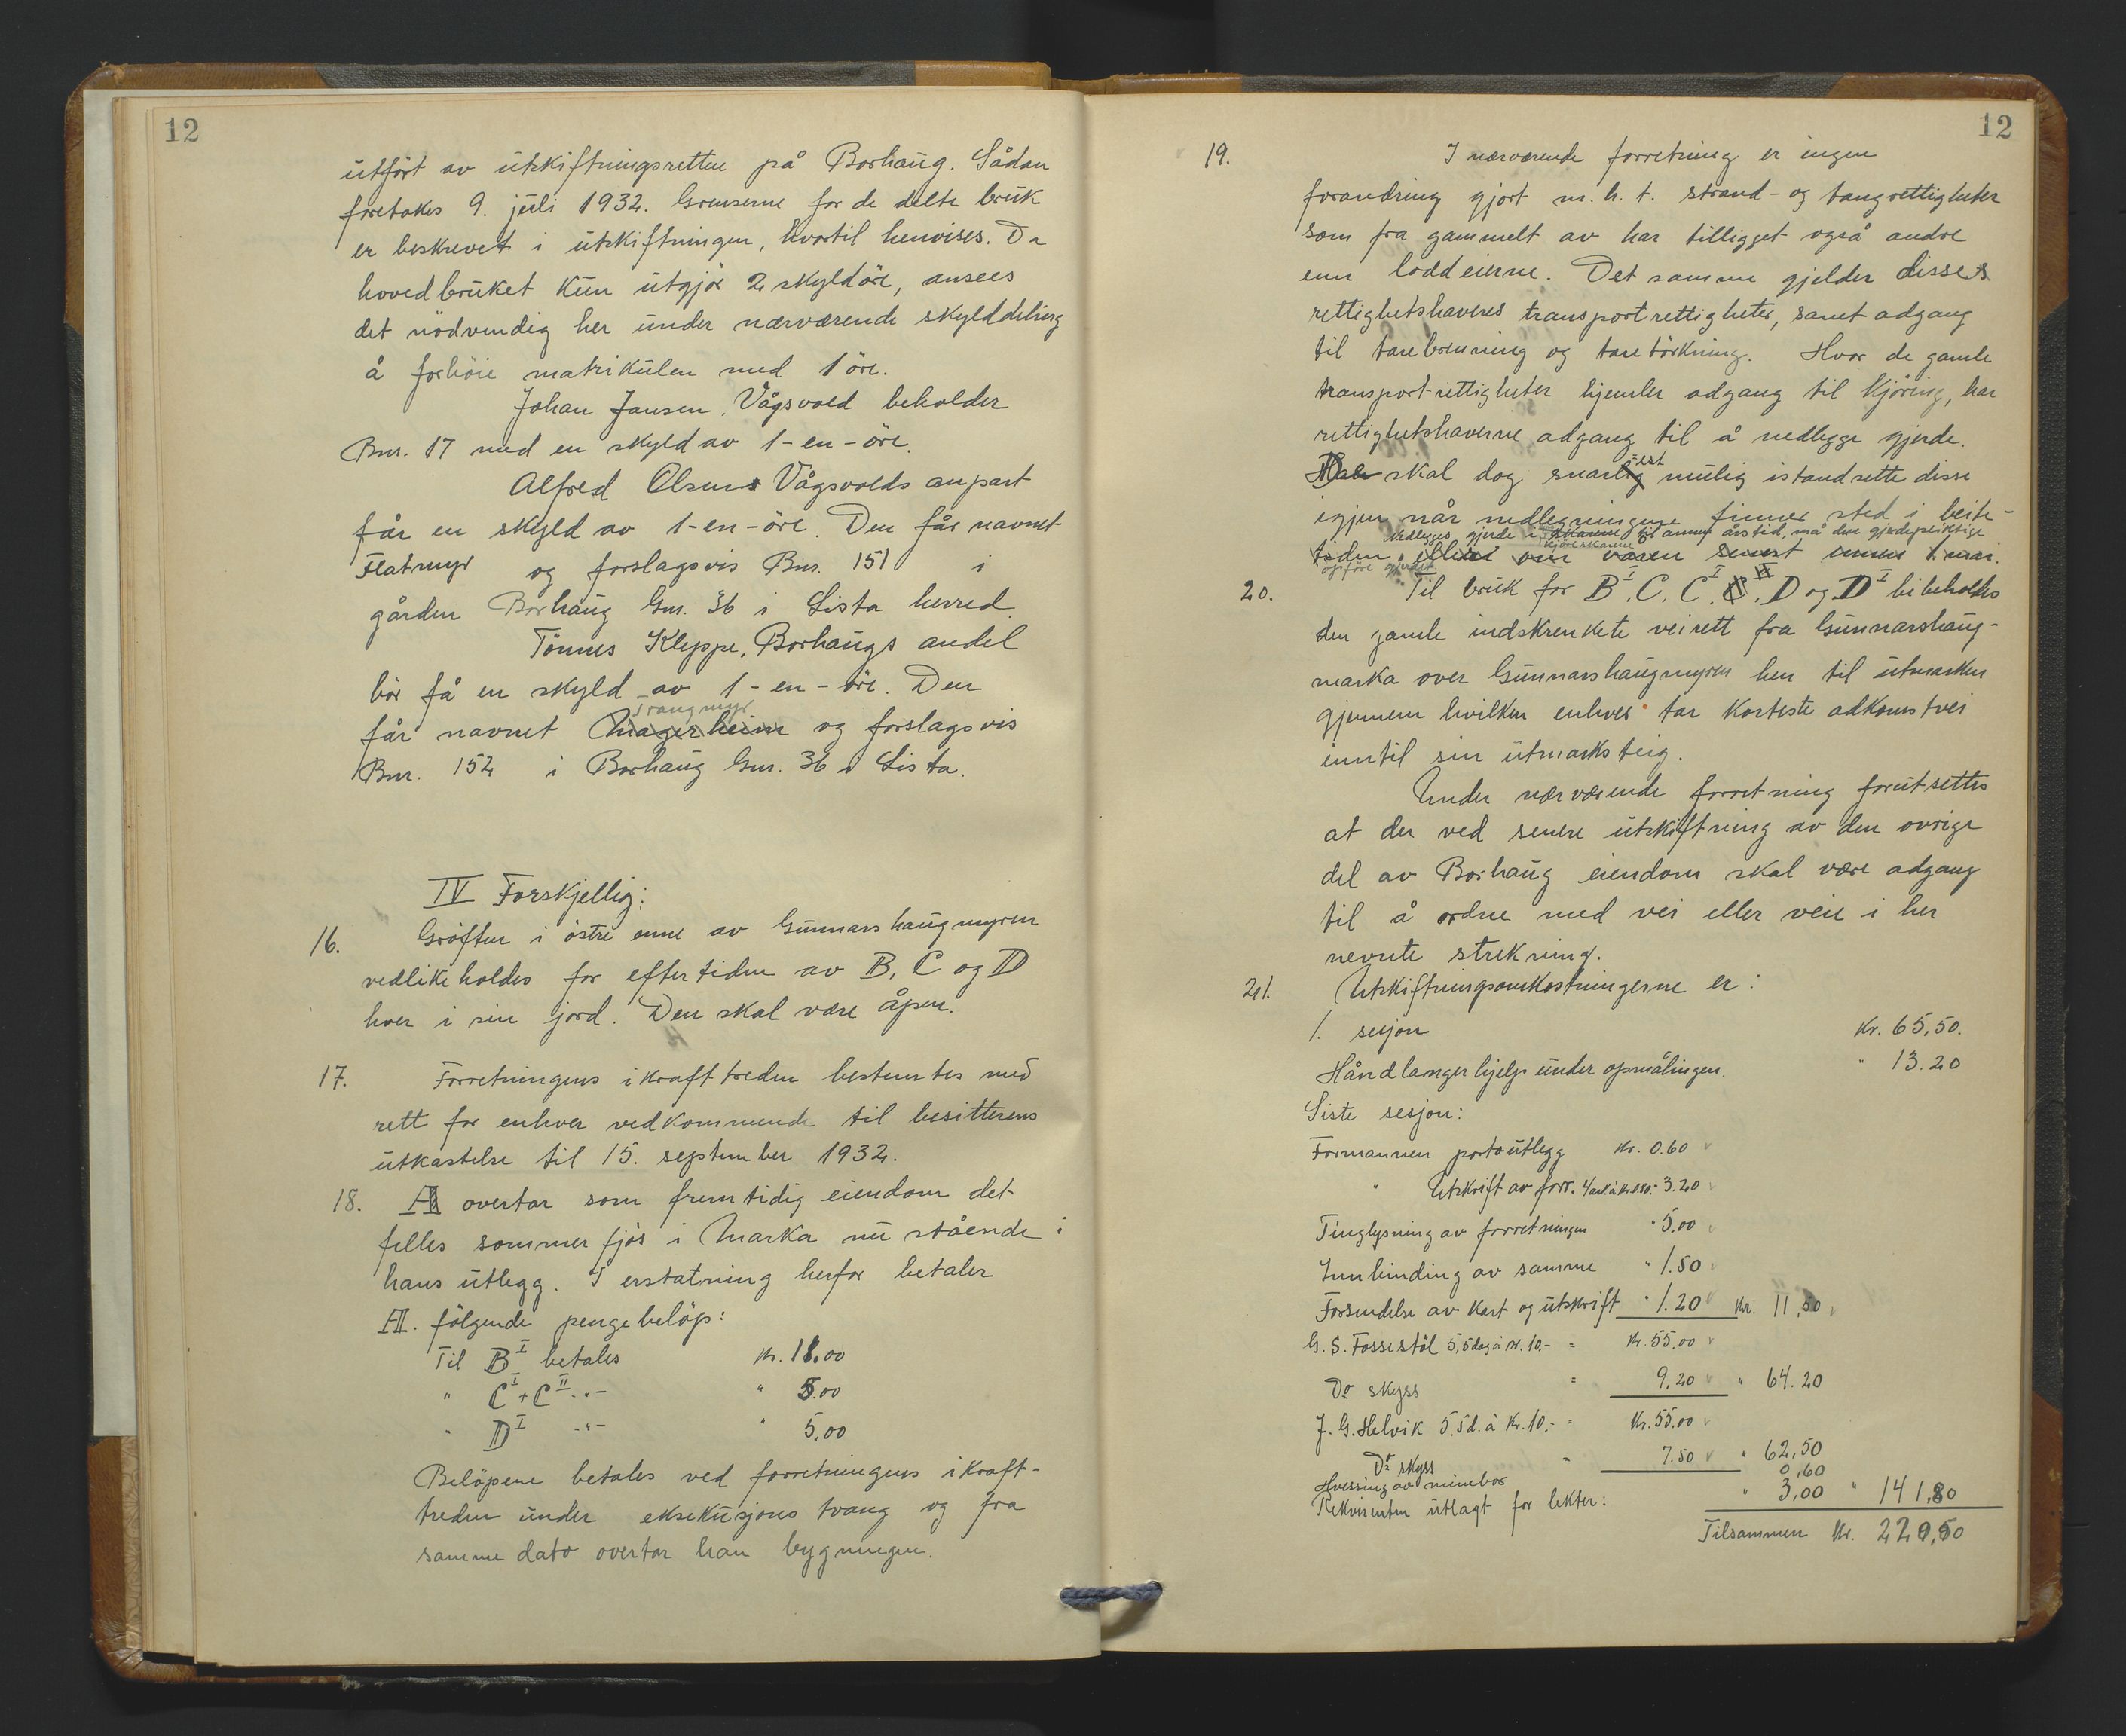 12
utført av utskiftningsretten på Borhaug. Sådan
foretokes 9. juli 1932. Grenserne for de delte bruk
er beskrevet i utskiftningen, hvortil henvises. Da
hovedbruket kun utgjør 2 skyldöre, ansees
det nödvendig her under nærværende skylddeling
å forhöie matrikulen med 1 öre.
Johan Jansen, Vågsvold beholder
Bnr. 17 med en skyld av 1-en-öre.
Alfred Olsens Vågsvolds anpart
får en skyld av 1-en-öre. Den får navnet
Flatmyr og forslagsvis Bnr. 151 i
gården Borhaug Gnr. 36 i Lista herred.
Tönnes Kleppe, Borhaugs andel
bör få en skyld av 1-en-öre. Den
Trangmyr
får navnet Magerheim og forslagsvis
Bnr. 152 i Borhaug Gnr. 36 i Lista.
IV Forskjellig:
16. Gröften i östre enne av Gunnarshaugmyren
vedlikeholdes for eftertiden av B, C og D
hver i sin jord. Den skal være åpen.
17. Forretningens ikrafttreden bestemtes med
rett for enhver vedkommende til besitterens
utkastelse til 15. september 1932.
18. A overtar som fremtidig eiendom det
felles sommerfjös i Marka nu stående i
hans utlegg. I erstatning herfor betaler
AII. fölgende pengebelöp:
Til B I betales kr. 18.00
" C I + C II -"- " 5.00
" D I -"- " 5,00
Belöpene betales ved forretningens ikraft-
treden under eksekusjons tvang og fra
samme dato overtar han bygningen.
12
19. I nærværende forretning er ingen
forandring gjort m.h.t. strand- og tangrettigheter
som fra gammelt av har tilligget også andre
enn loddeierne. Det samme gjelder disses
rettighetshaveres transportrettigheter, samt adgang
til tarebrenning og taretörkning. Hvor de gamle
transportrettigheter hjemler adgang til kjöring, har
rettighetshaverne adgang til å nedlegge gjerde.
-est
De skal dog snarlig mulig istandsette disse
igjen når nedlegningene finner sted i beite-
nedlegges gjerde i til annen årstid, må den gjerdepliktige
kjöreskarene
tiden, våren senest innen 1 mai.
opföre gjerdet
20. Til bruk for B I, C, C I, C II, D og D I bibeholdes
den gamle indskrenkete veirett fra Gunnarshaug-
marka over Gunnarshaugmyren hen til utmarken
gjennem hvilken enhver tar korteste adkomstvei
inntil sin utmarksteig.
Under nærværende forretning forutsettes
at der ved senere utskiftning av den övrige
del av Borhaug eiendom skal være adgang
til å ordne med vei eller veie i her
nevnte strekning.
21. Utskiftningsomkostningerne er:
1. sesjon kr. 65,50.
Håndlangerhjelp under opmålingen. " 13.20
Siste sesjon:
Formannen portoutlegg kr. 0.60
" Utskrift av forr. 4 ark à kr. 0.80.- 3.20
Tinglysning av forretningen " 5.00
Innbinding av samme " 1.50
Forsendelse av kart og utskrift " 1.20 kr. 11,50
G. S. Fossestöl 5,5 dag à kr. 10.- = kr. 55.00
Do skyss = 9,20 " 64.20
J. G. Helvik 5.5 d. à kr. 10.- = kr. 55.00
Do skyss = 7.50 " 62,50
Hvessing av minebor 0,60
Rekvirenten utlagt for lekter: " 3,00 " 141,80
Tilsammen kr. 220,50